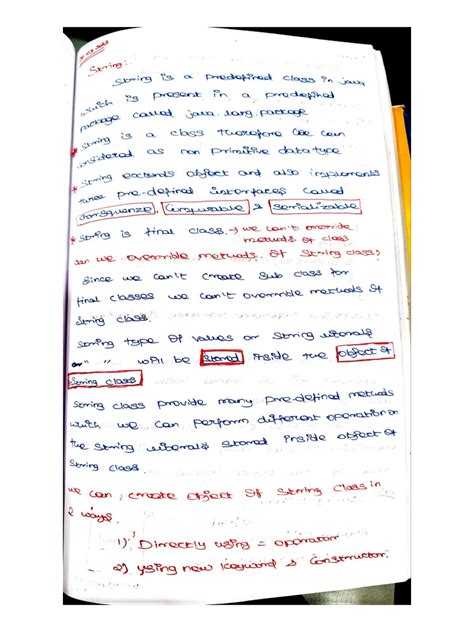 String:
String is a predefined class in java
which is present in a predefined
package called java.lang.package
* String is a class therefore we can
considered as non primitive datatype
* String extends object and also implements
three pre-defined interfaces called
Charsequenze, Comparable, & Serializable
* String is final class. → we can't override
methods of class
can we override methods of string class?
Since we can't create sub class for
final classes we can't override methods of
string class.
string type of values or string literals
" " will be stored inside the object of
string class
string class provide many pre-defined methods
which we can perform different operation on
the string literals stored inside object of
string class
we can create object of string class in
2 ways.
1) Directly using = operator
2) using new keyword & constructor.